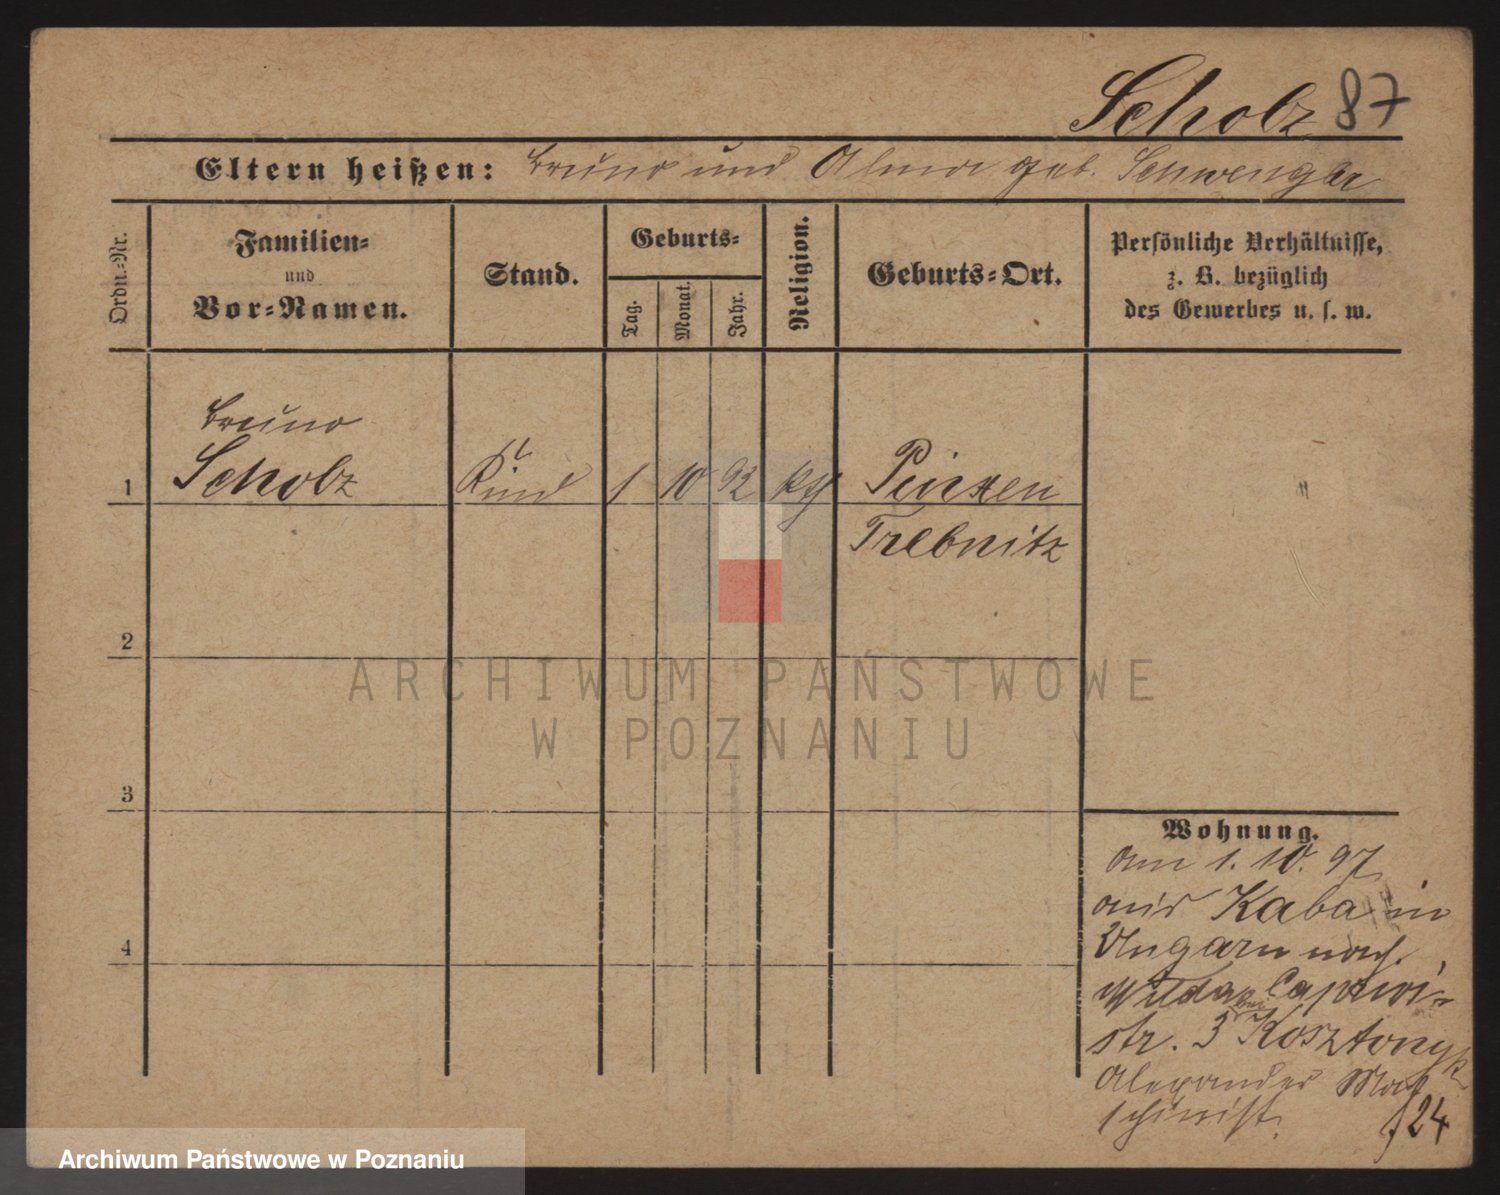 Scholz 87
Eltern heißen: Bruno und Alma geb. Schwengber
Ordn.-Nr.
Familien-
und
Vor-Namen.
Stand.
Geburts-
Tag.
Monat.
Jahr.
Religion.
Geburts-Ort.
Persönliche Verhältnisse,
z. B. bezüglich
des Gewerbes u. s. w.
Bruno
1 Scholz Kind 1 10 92 kth
Trebnitz
2
3
4
Wohnung.
am 1. 10. 97
aus Kaba in
Ungarn nach
Wilda Caprivi-
str. 3 bei
Alexander Ma-
schinist.
f24
ARCHIWUM PAŃSTWOWE
W POZNANIU
Archiwum Państwowe w Poznaniu